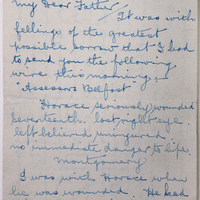 my Dear Father
It was with
feelings of the greatest
possible sorrow that I had
to send you the following
wire this morning.
"Assessors Belfast"
Horace seriously wounded
Seventeenth. lost right eye.
left believed uninjured.
no immediate danger to life.
montgomery
I was with Horace when
he was wounded. He had